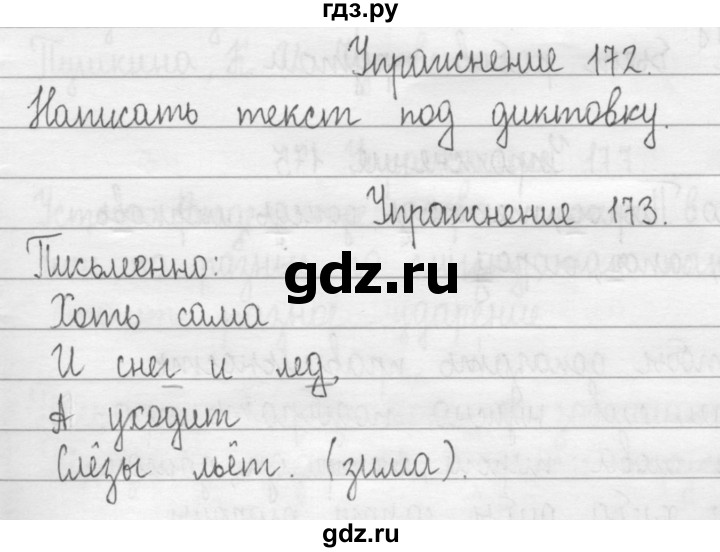 гдз.ру
Упражнение 172.
Написать текст под диктовку.
Упражнение 173.
Письменно:
gdz.ru
Хоть сама
И снег и лед,
А уходит
Слёзы льёт. (зима).
gdz.ru